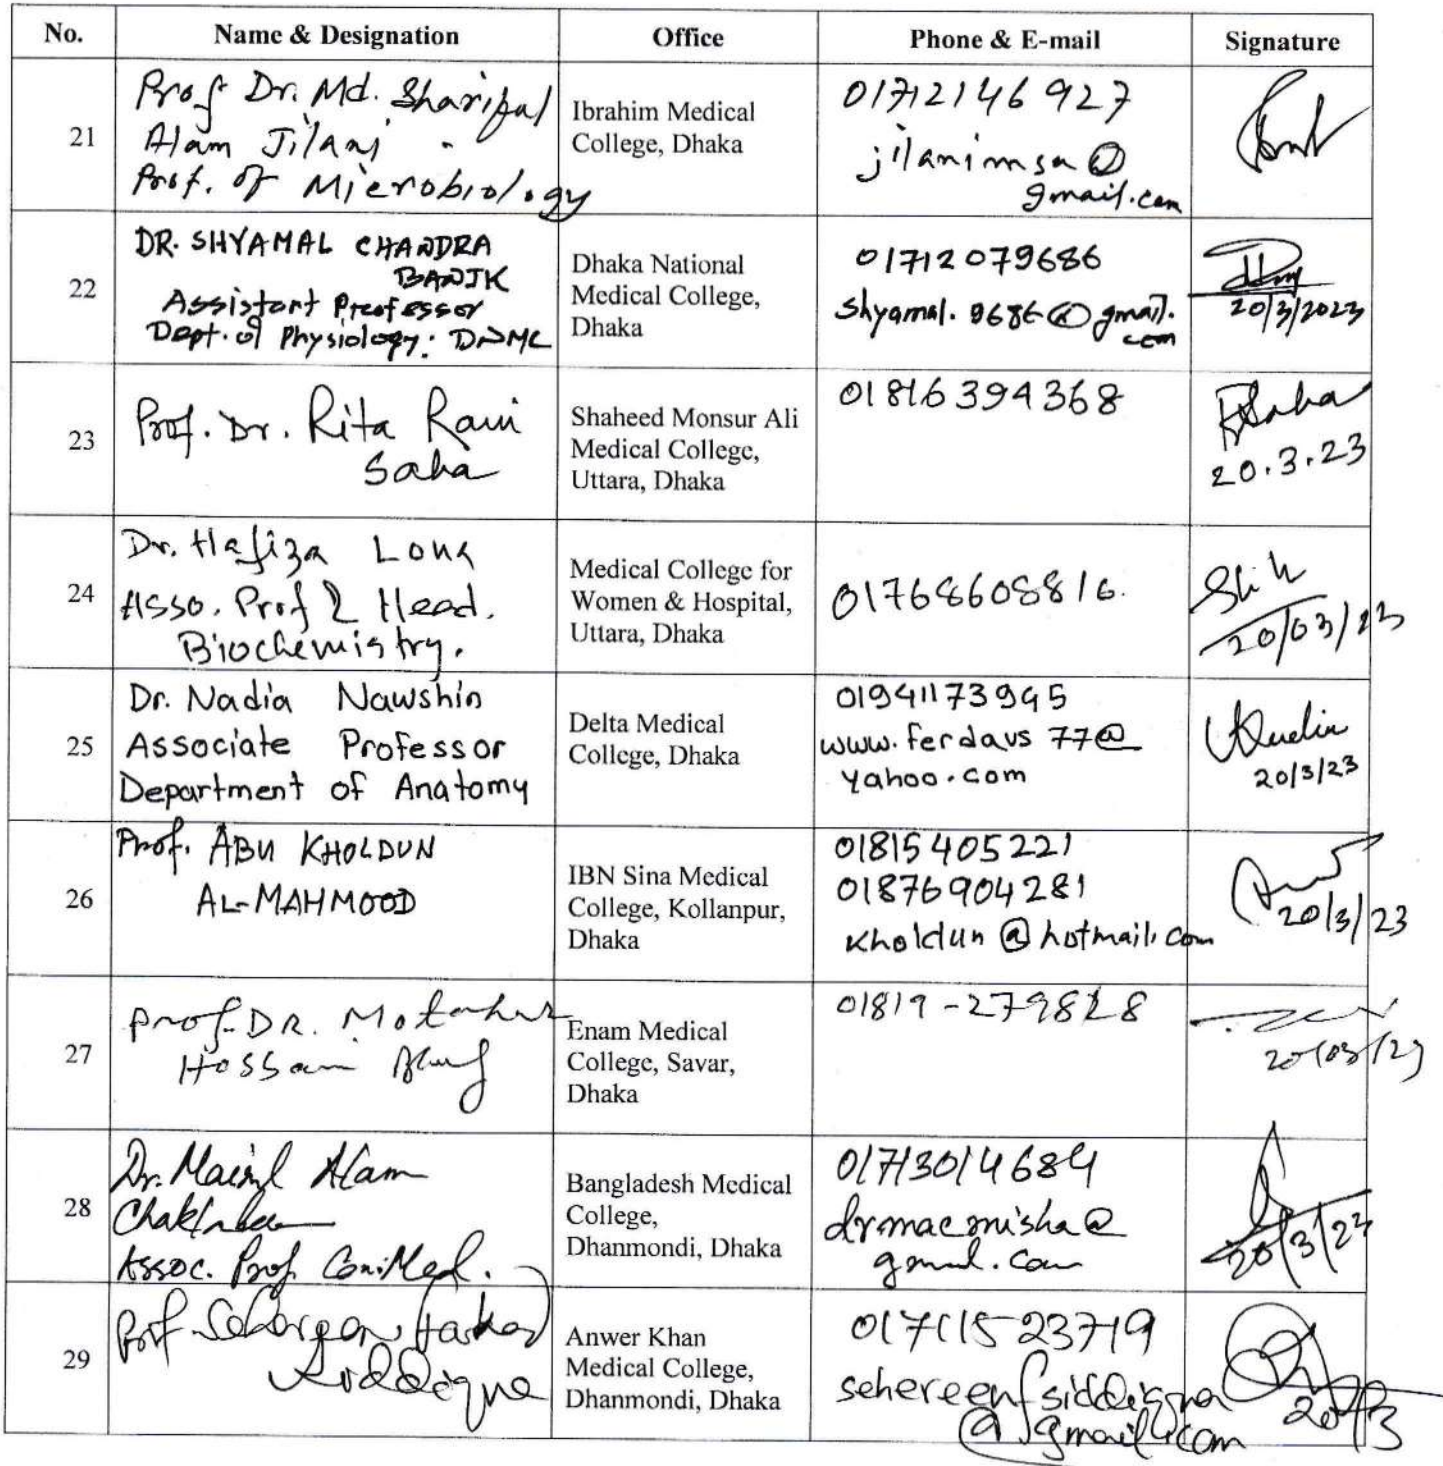 No. Name & Designation Office Phone & E-mail Signature
21
Prof Dr. Md. Shariful
Alam Jilani
Prof. of Microbiology
Ibrahim Medical
College, Dhaka
01712146927
jilanimsa@
gmail.com
22
DR. SHYAMAL CHANDRA
BANIK
Assistant Professor
Dept. of Physiology. DNMC
Dhaka National
Medical College,
Dhaka
01712079686
shyamal.9686@gmail.
com
20/3/2023
23
Prof. Dr. Rita Rani
Saha
Shaheed Monsur Ali
Medical College,
Uttara, Dhaka
01816394368
RSaha
20.3.23
24
Dr. Hafiza Lona
Asso. Prof & Head.
Biochemistry.
Medical College for
Women & Hospital,
Uttara, Dhaka
01768608816.
20/03/23
25
Dr. Nadia Nawshin
Associate Professor
Department of Anatomy
Delta Medical
College, Dhaka
01941173945
www.ferdaus77@
yahoo.com
20/3/23
26
Prof. ABU KHOLDUN
AL-MAHMOOD
IBN Sina Medical
College, Kollanpur,
Dhaka
01815405221
01876904281
kholdun@hotmail.com
20/3/23
27
Prof. DR. Motahar
Hossain
Enam Medical
College, Savar,
Dhaka
01819-279828
20/03/23
28
Dr. Mainul Alam
Assoc. Prof. Com. Med.
Bangladesh Medical
College,
Dhanmondi, Dhaka
01713014684
drmacmisha@
gmail.com
20/3/23
29
Prof Sehereen Farhad
Siddiqua
Anwer Khan
Medical College,
Dhanmondi, Dhaka
01711523719
sehereenfsiddiqua
@gmail.com
20/3